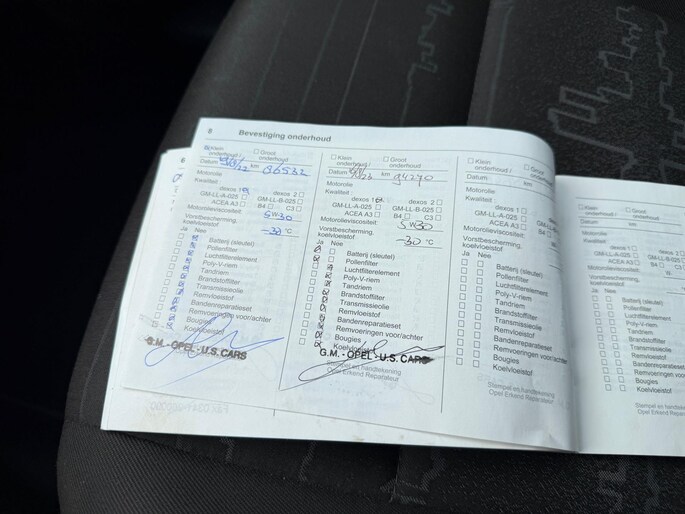 8 Bevestiging onderhoud
Klein onderhoud / Groot onderhoud
Datum km 86532
Motorolie
Kwaliteit
dexos 1 dexos 2
GM-LL-A-025 GM-LL-B-025
ACEA A3 B4 C3
Motorolieviscositeit 5W30
Vorstbescherming, koelvloeistof -30 °C
Ja Nee
Batterij (sleutel)
Pollenfilter
Luchtfilterelement
Poly-V-riem
Tandriem
Brandstoffilter
Transmissieolie
Remvloeistof
Bandenreparatieset
Remvoeringen voor/achter
Bougies
Koelvloeistof
G.M. - OPEL - U.S. CARS
Klein onderhoud / Groot onderhoud
Datum km 94270
Motorolie
Kwaliteit
dexos 1 dexos 2
GM-LL-A-025 GM-LL-B-025
ACEA A3 B4 C3
Motorolieviscositeit 5W30
Vorstbescherming, koelvloeistof -30 °C
Ja Nee
Batterij (sleutel)
Pollenfilter
Luchtfilterelement
Poly-V-riem
Tandriem
Brandstoffilter
Transmissieolie
Remvloeistof
Bandenreparatieset
Remvoeringen voor/achter
Bougies
Koelvloeistof
G.M. - OPEL - U.S. CARS
Stempel en handtekening
Opel Erkend Reparateur
Klein onderhoud / Groot onderhoud
Datum km
Motorolie
Kwaliteit
dexos 1
GM-LL-A-025
ACEA A3 B4
Motorolieviscositeit
Vorstbescherming, koelvloeistof
Ja Nee
Batterij (sleutel)
Pollenfilter
Luchtfilterelement
Poly-V-riem
Tandriem
Brandstoffilter
Transmissieolie
Remvloeistof
Bandenreparatieset
Remvoeringen voor/achter
Bougies
Koelvloeistof
Stempel en handtekening
Opel Erkend Reparateur
Klein onderhoud / Groot onderhoud
Datum
Motorolie
Kwaliteit
dexos 1
GM-LL-A-025
ACEA A3
Motorolieviscositeit
Vorstbescherming, koelvloeistof
Ja Nee
Batterij (sleutel)
Pollenfilter
Luchtfilterelement
Poly-V-riem
Tandriem
Brandstoffilter
Transmissieolie
Remvloeistof
Bandenreparatieset
Remvoeringen voor/achter
Bougies
Koelvloeistof
Stempel en
Opel Erkend